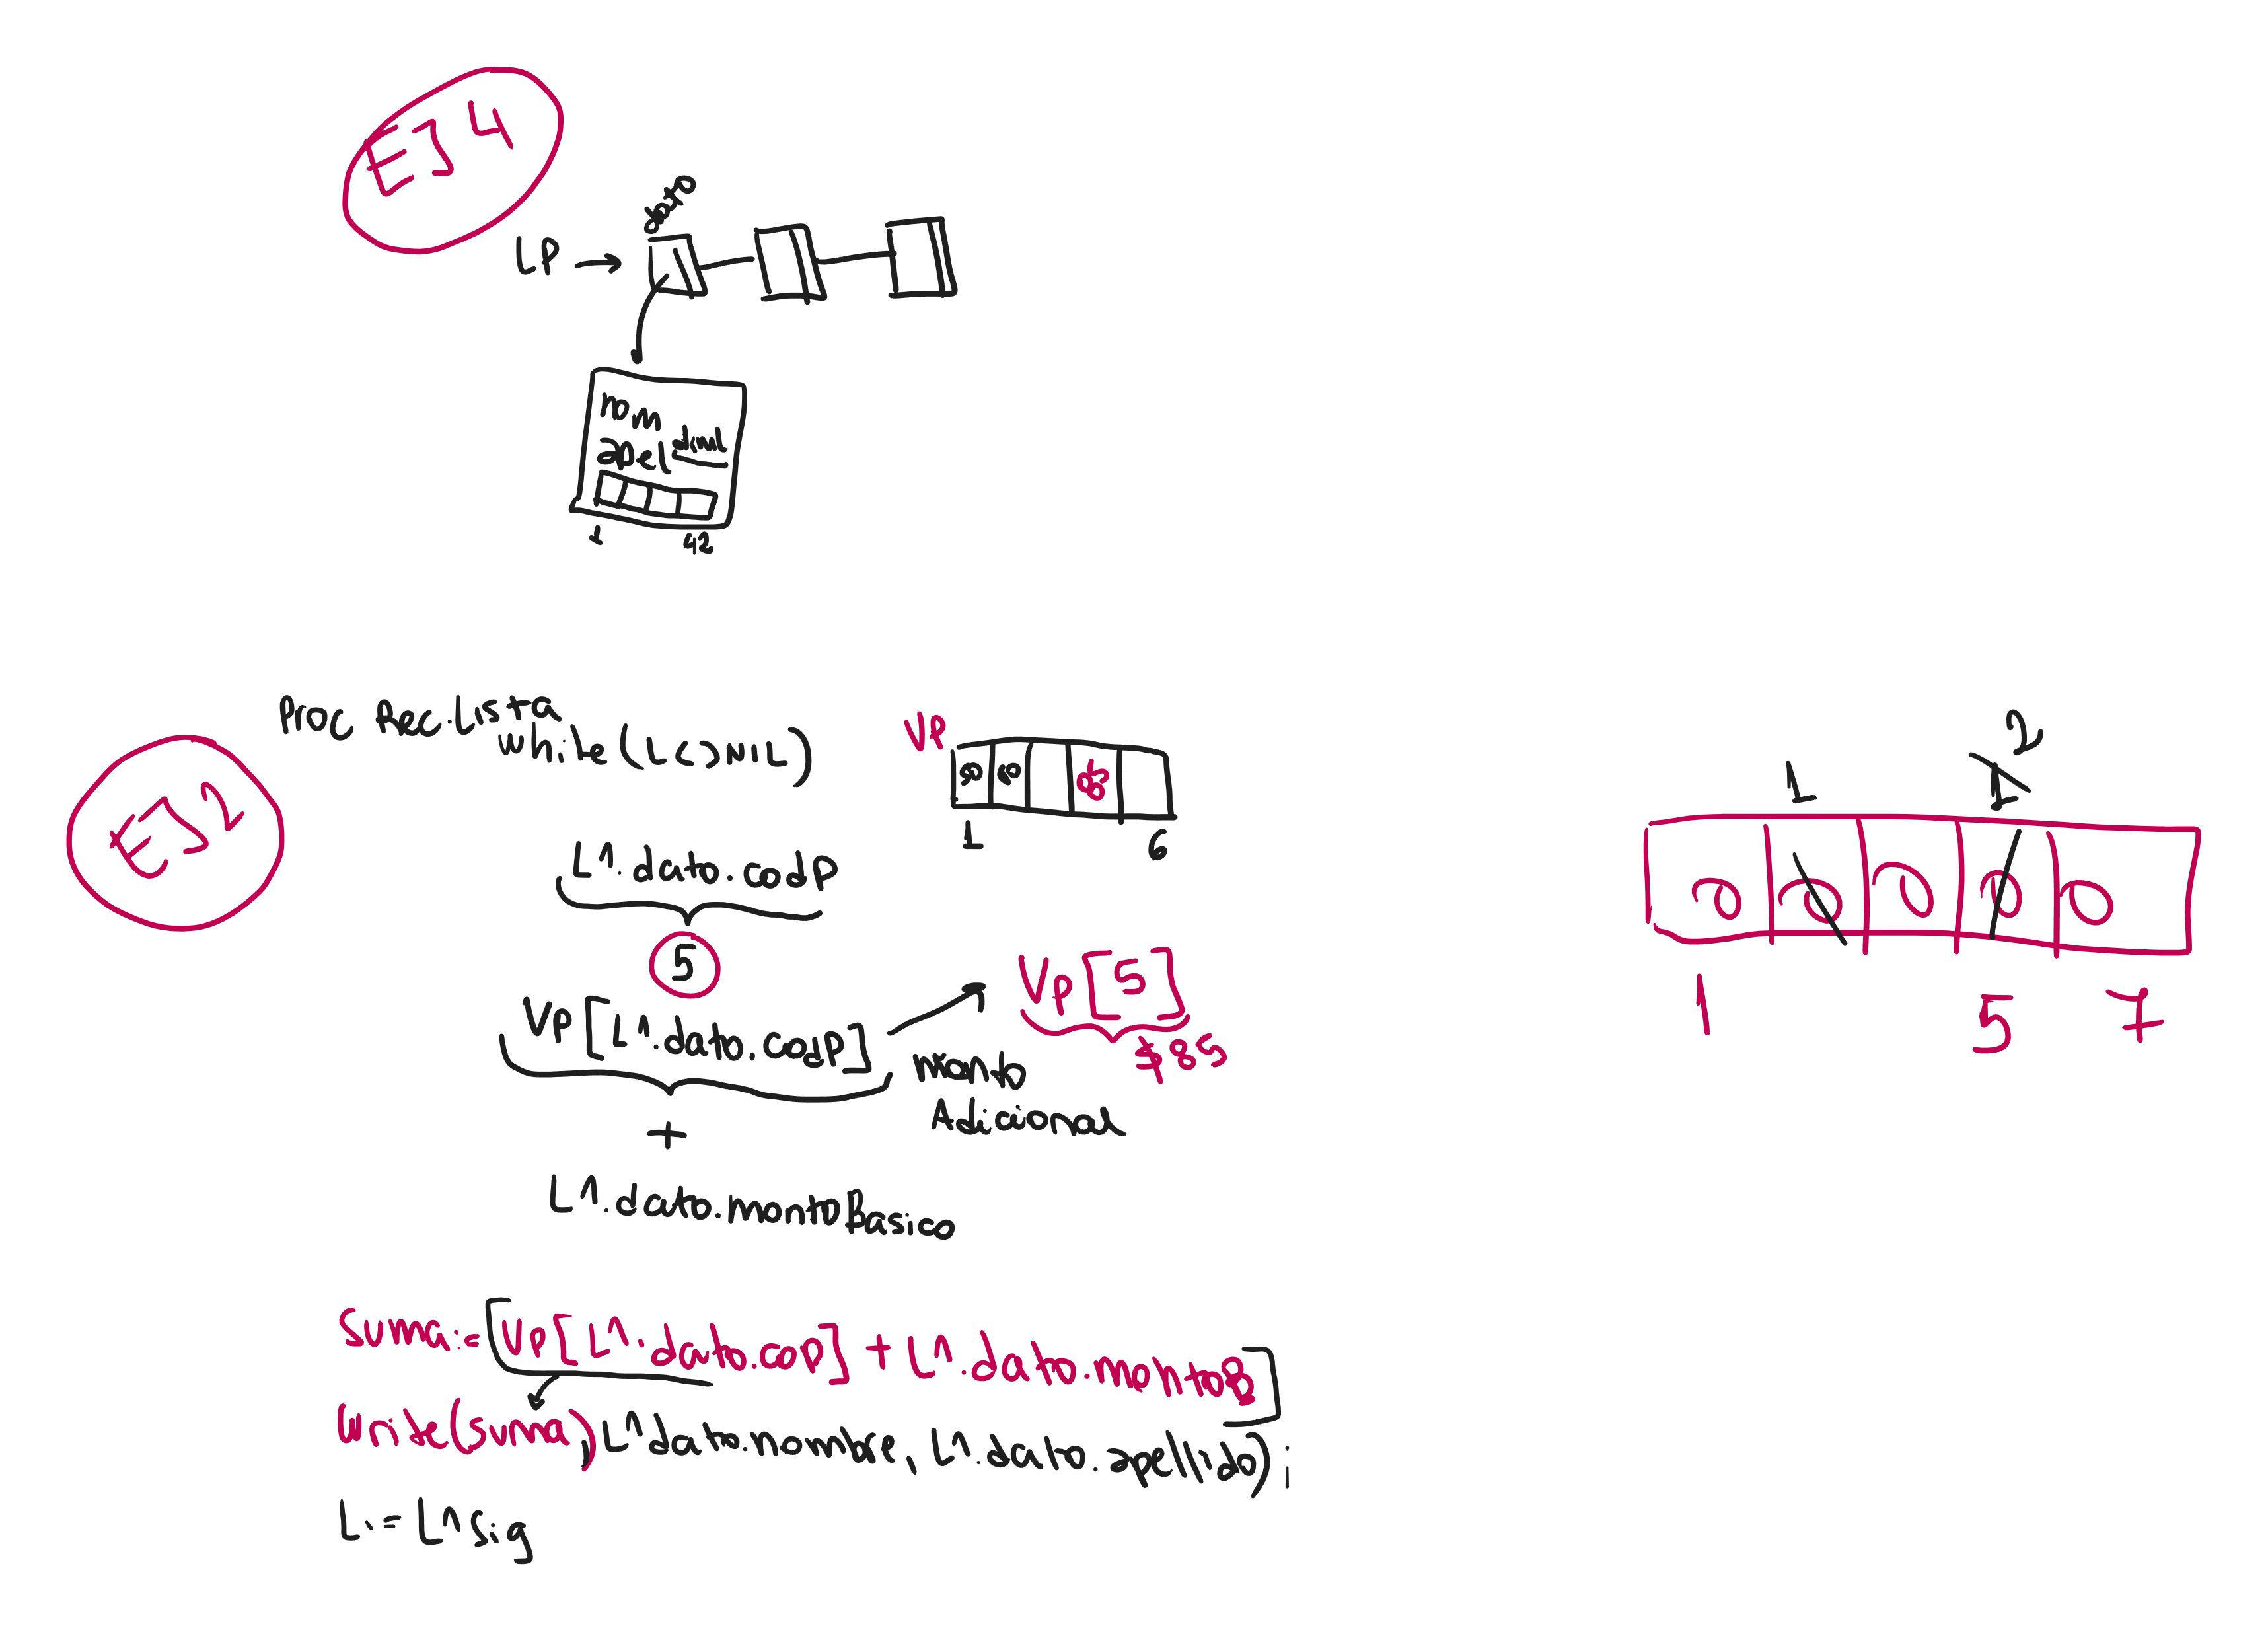 EJ 4
dato
LP
nom
apel dimL
1 42
EJ 2
Proc Rec.Lista
while (L <> NIL)
VP
50 60 85
1 6
L^.dato.codP
5
VP[L^.dato.codP]
VP[5]
$85
monto
Adicional
+
L^.dato.montoBasico
suma:=[VP[L^.dato.coP] + L^.dato.montoB]
Write(suma), L^dato.nombre, L^.dato.apellido);
L:= L^sig
1 1 2
0 0 0 0 0
1 5 7